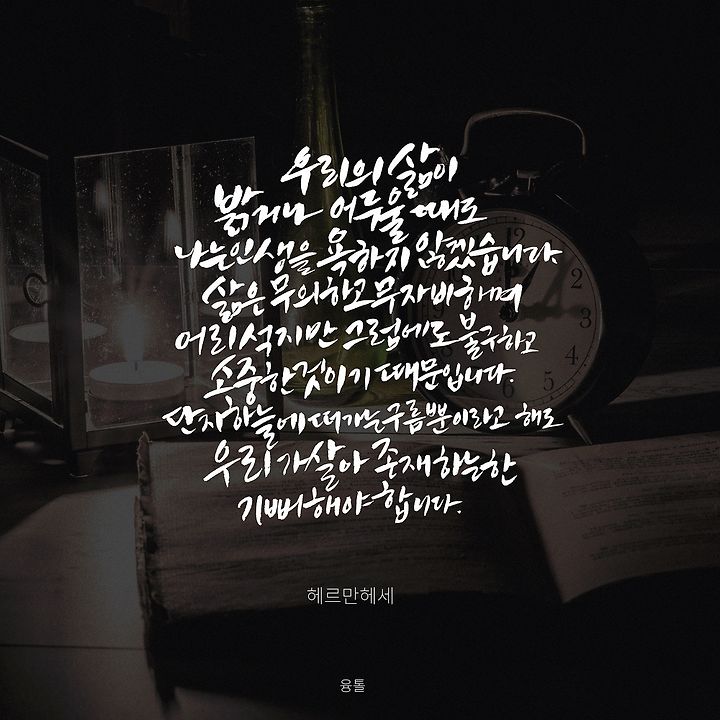 우리의 삶이
밝거나 어두울 때도
나는 인생을 욕하지 않겠습니다.
삶은 무의하고 무자비하며
어리석지만 그럼에도 불구하고
소중한 것이기 때문입니다.
단지 하늘에 떠가는 구름뿐이라고 해도
우리가 살아 존재하는 한
기뻐해야 합니다.
헤르만헤세
융톨
12
1
2
3
4